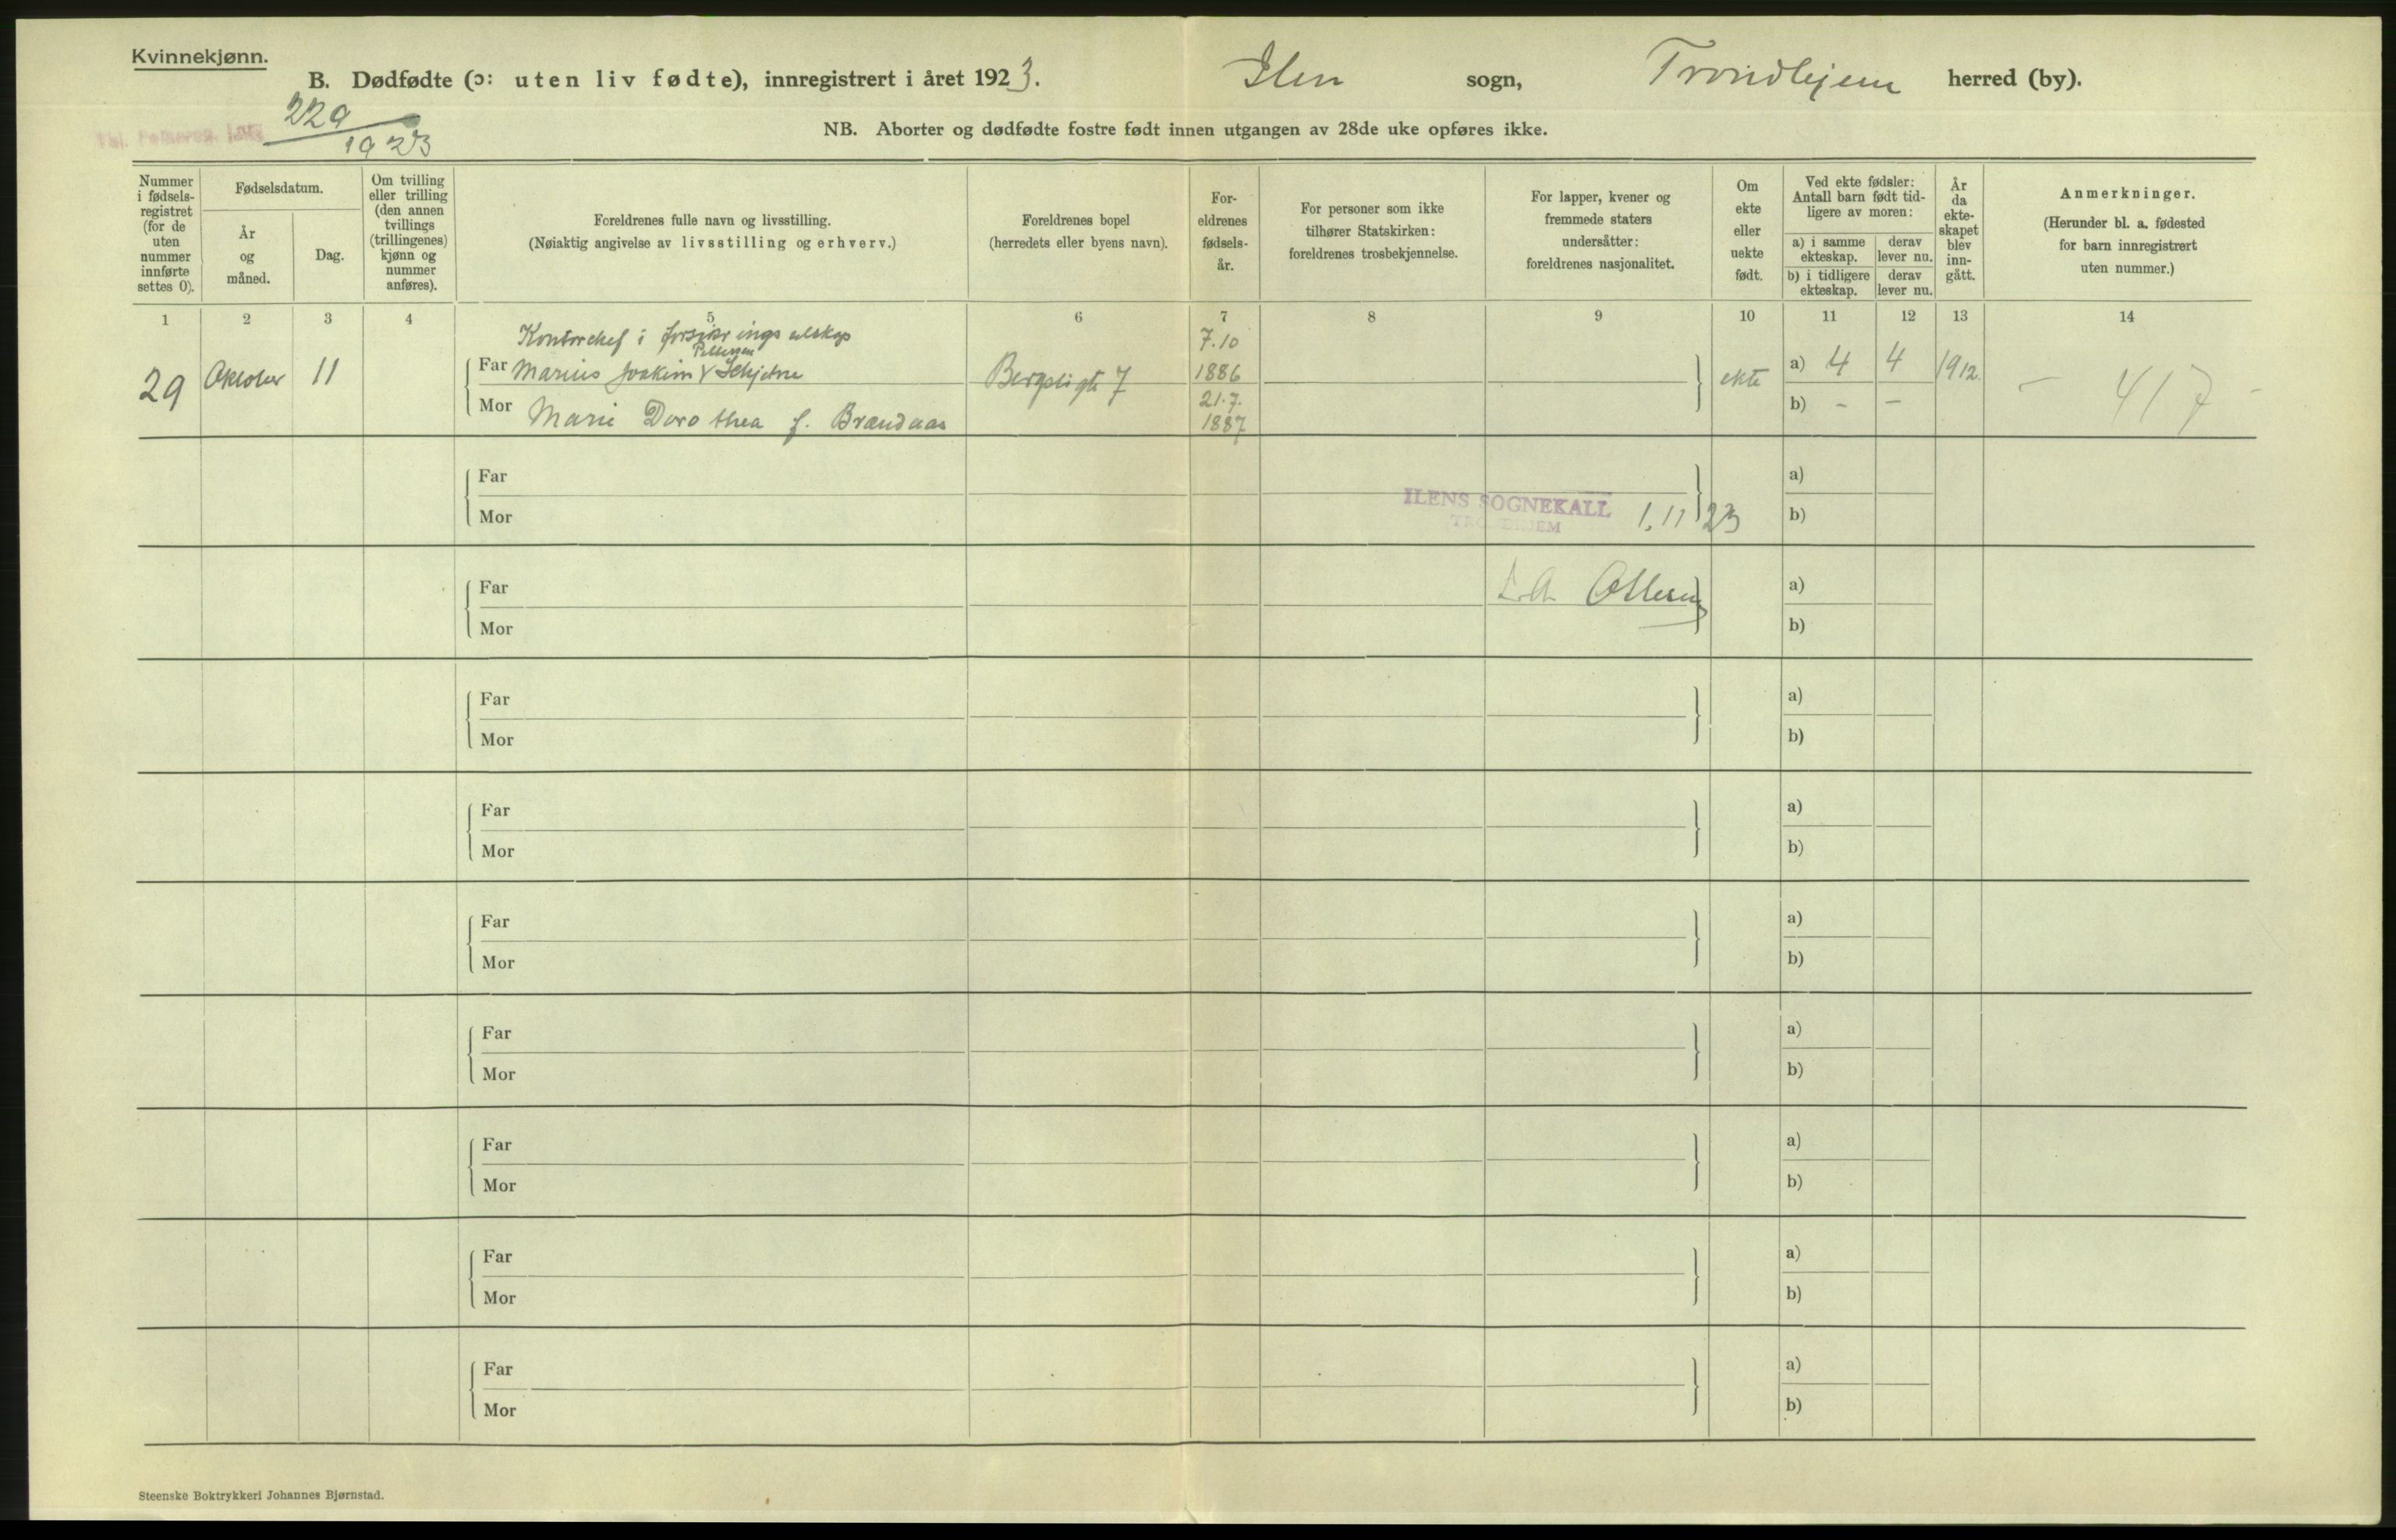 Kvinnekjønn.
B. Dødfødte (ɔ: uten liv fødte), innregistrert i året 1923. Ilen sogn, Trondhjem herred (by).
229
1923
NB. Aborter og dødfødte fostre født innen utgangen av 28de uke opføres ikke.
Nummer i fødsels-registret (for de uten nummer innførte settes 0).
Fødselsdatum.
År og måned.
Dag.
Om tvilling eller trilling (den annen tvillings (trillingenes) kjønn og nummer anføres).
Foreldrenes fulle navn og livsstilling.
(Nøiaktig angivelse av livsstilling og erhverv.)
Foreldrenes bopel
(herredets eller byens navn).
For-eldrenes fødsels-år.
For personer som ikke tilhører Statskirken: foreldrenes trosbekjennelse.
For lapper, kvener og fremmede staters undersåtter: foreldrenes nasjonalitet.
Om ekte eller uekte født.
Ved ekte fødsler: Antall barn født tid-ligere av moren:
a) i samme ekteskap.
derav lever nu.
b) i tidligere ekteskap.
derav lever nu.
År da ekte-skapet blev inn-gått.
Anmerkninger.
(Herunder bl. a. fødested for barn innregistrert uten nummer.)
1 2 3 4 5 6 7 8 9 10 11 12 13 14
Kontorchef i 7.10
Pettersen
29 Oktober 11 Far Marius Joakim Schjetne 7 1886 ekte a) 4 4 1912. - 417 -
Mor Marie Dorothea f. Brandaas 21.7. 1887 b) - -
Far a)
ILENS SOGNEKALL 1.11 23
Mor b)
Far a)
Mor b)
Far a)
Mor b)
Far a)
Mor b)
Far a)
Mor b)
Far a)
Mor b)
Far a)
Mor b)
Far a)
Mor b)
Far a)
Mor b)
Steenske Boktrykkeri Johannes Bjørnstad.